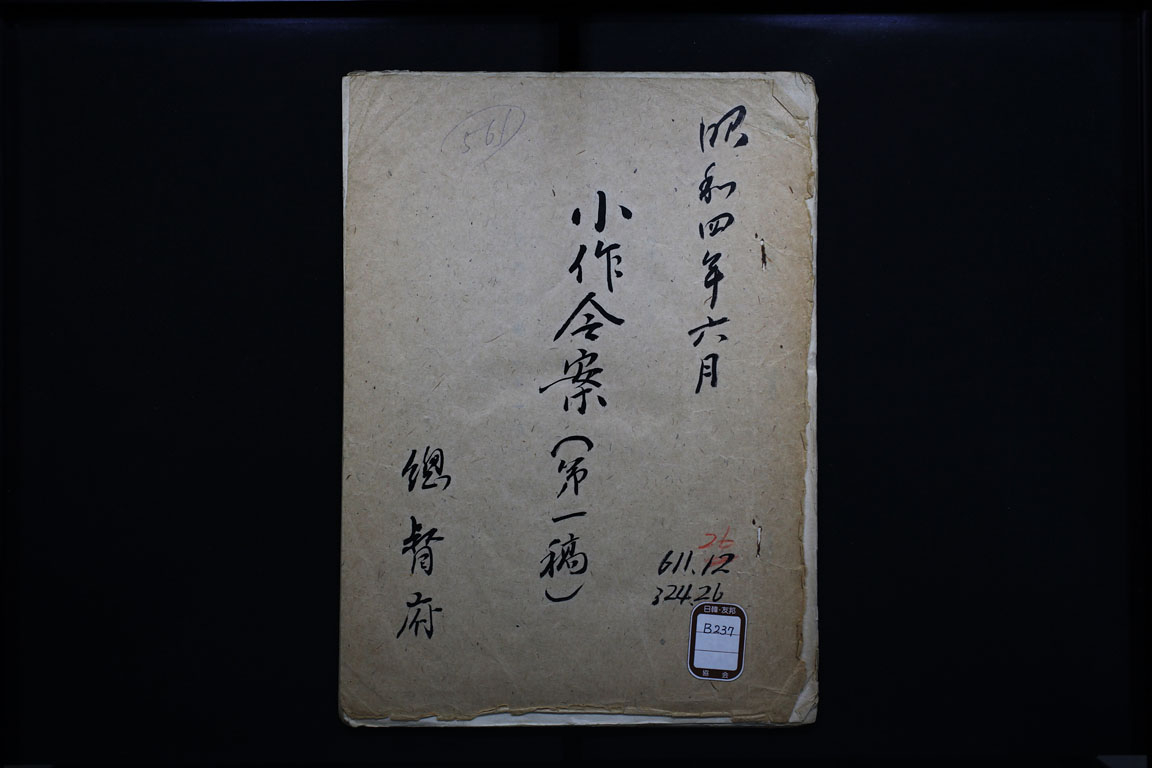 昭和四年六月
小作令案(第一稿)
總督府
561
26
611.12
324.26
日韓・友邦
B237
協会